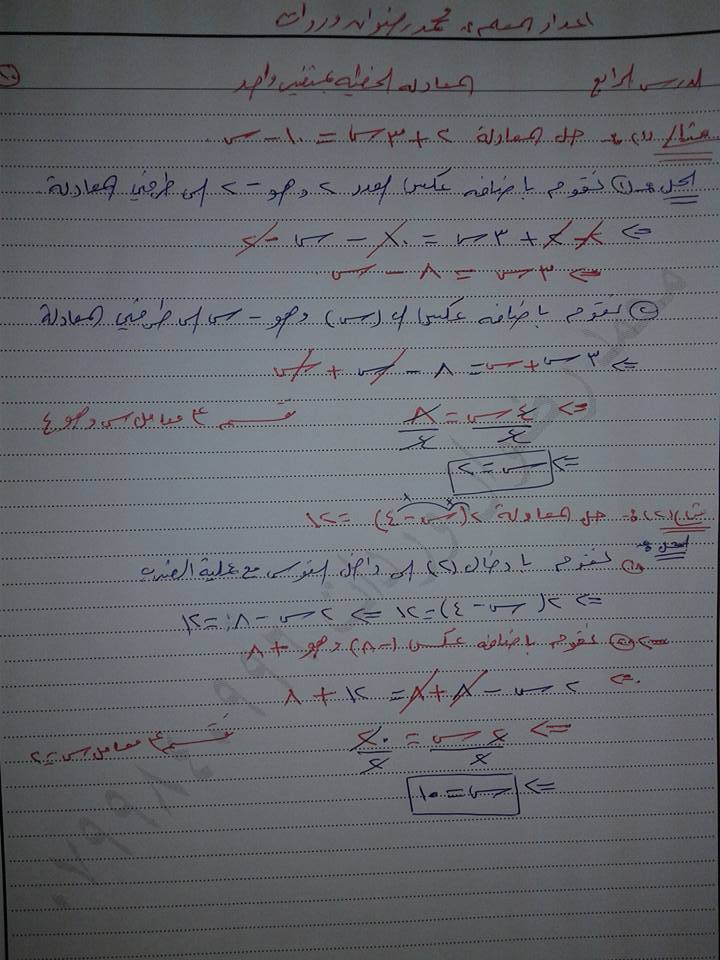 اعداد المعلم: محمد رضوان وردات
الدرس الرابع المعادلة الخطية بمتغير واحد
مثال (١): حل المعادلة ٢ + ٣س = ١٠ - س
الحل: ① نقوم باضافة عكس العدد ٢ وهو -٢ الى طرفي المعادلة
<= -٢ + ٢ + ٣س = ١٠ - س - ٢
<= ٣س = ٨ - س
② نقوم باضافة عكس ال (س) وهو - س الى طرفي المعادلة
<= ٣س + س = ٨ - س + س
<= ٤س/٤ = ٨/٤ نقسم ع معامل س وهو ٤
<= س = ٢
مثال (٢): حل المعادلة ٢(س - ٤) = ١٢
الحل: ① نقوم بادخال (٢) الى داخل القوس مع عملية الضرب
<= ٢(س - ٤) = ١٢ <= ٢س - ٨ = ١٢
② نقوم باضافة عكس (-٨) وهو +٨
<= ٢س - ٨ + ٨ = ١٢ + ٨
<= ٢س/٢ = ٢٠/٢ نقسم ع معامل س = ٢
<= س = ١٠